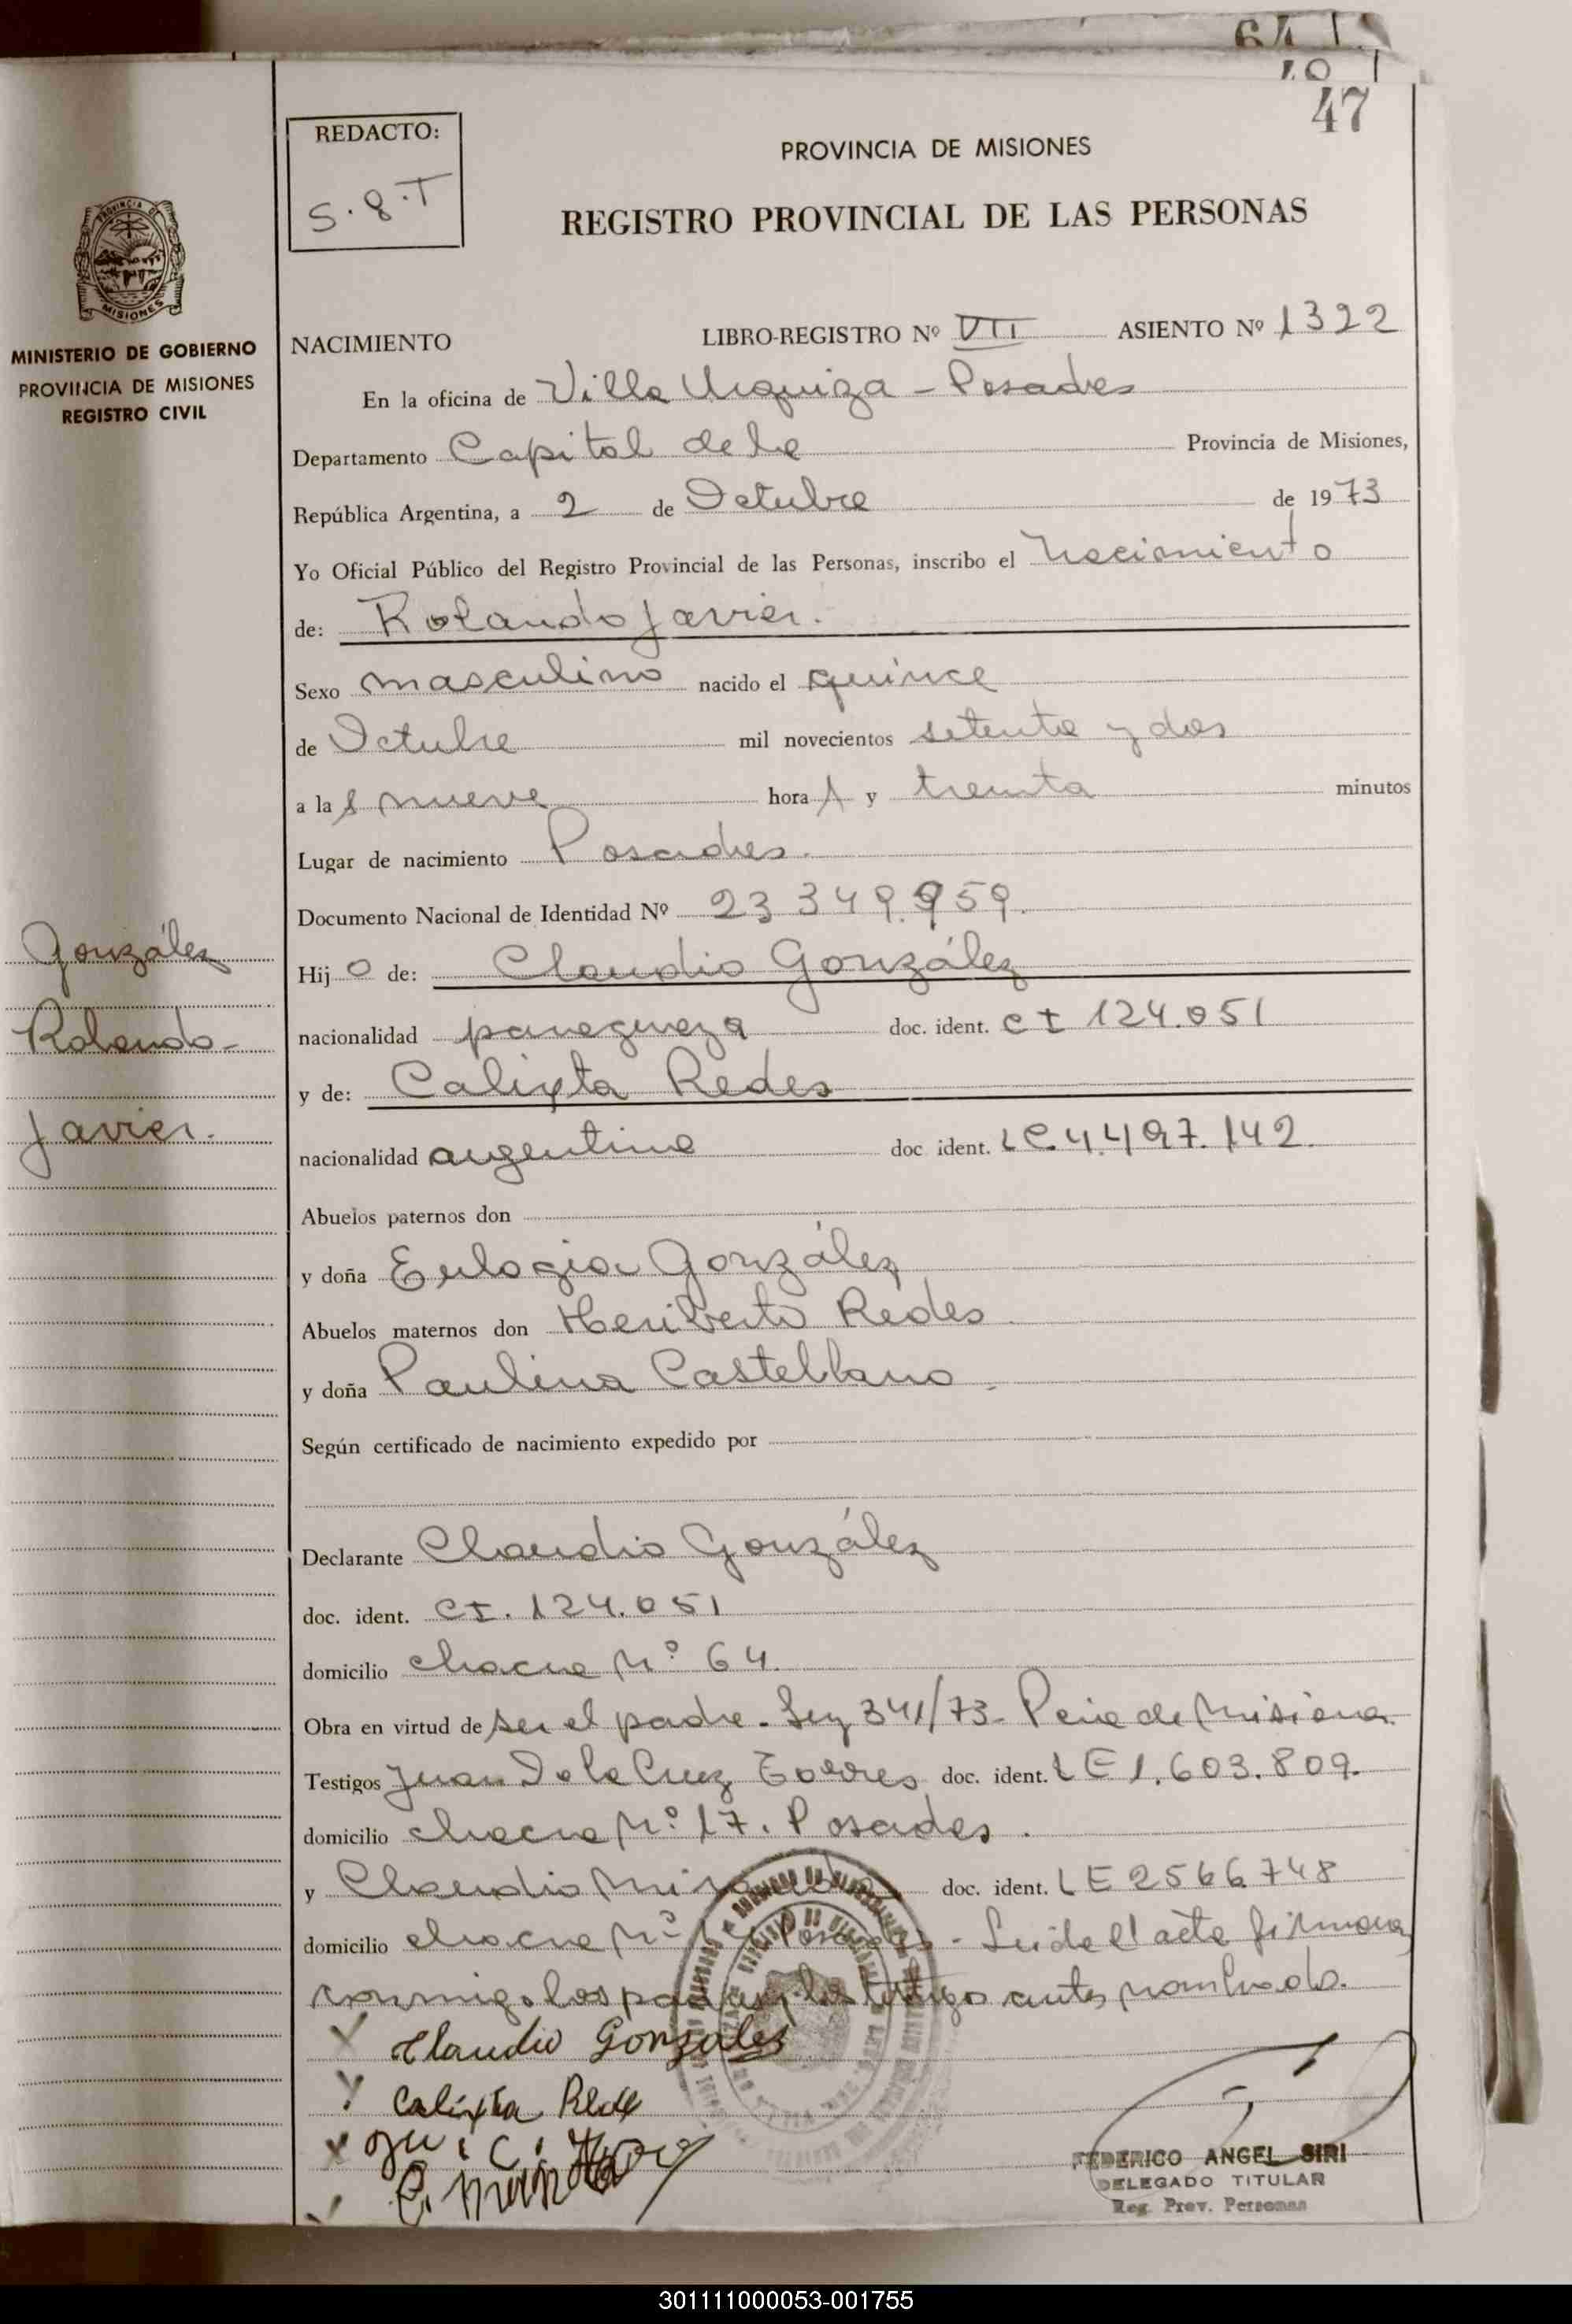 64
40
47
REDACTO:
S.G.T
PROVINCIA DE MISIONES
REGISTRO PROVINCIAL DE LAS PERSONAS
PROVINCIA DE
MISIONES
MINISTERIO DE GOBIERNO
PROVINCIA DE MISIONES
REGISTRO CIVIL
NACIMIENTO LIBRO-REGISTRO Nº VII ASIENTO Nº 1322
En la oficina de Villa Urquiza - Posadas
Departamento Capital de la Provincia de Misiones,
República Argentina, a 2 de Octubre de 1973
Yo Oficial Público del Registro Provincial de las Personas, inscribo el nacimiento
de: Rolando Javier.
Sexo masculino nacido el quince
de Octubre mil novecientos setenta y dos
a la s nueve hora s y treinta minutos
Lugar de nacimiento Posadas.
Documento Nacional de Identidad Nº 23 349.959.
González
Hij o de: Claudio González
Rolando
nacionalidad paraguaya doc. ident. CI 124.051
y de: Calixta Redes
Javier.
nacionalidad argentina doc ident. LC. 4.497.142.
Abuelos paternos don
y doña Eulogia González
Abuelos maternos don Heriberto Redes
y doña Paulina Castellano.
Según certificado de nacimiento expedido por
Declarante Claudio González
doc. ident. CI. 124.051
domicilio chacra Nº 64.
Obra en virtud de ser el padre. Ley 341/73- Pcia de Misiones
Testigos Juan De la Cruz Torres doc. ident. LE 1.603.809.
domicilio chacra Nº 17. Posadas.
y Claudio Miranda doc. ident. LE 2566748
domicilio chacra Nº Posadas - Leida el acta firman
conmigo los padres y los testigos antes nombrado.
Claudio Gonzales
Calixta Rede
C. Miranda
FEDERICO ANGEL SIRI
DELEGADO TITULAR
Reg. Prov. Personas
301111000053-001755